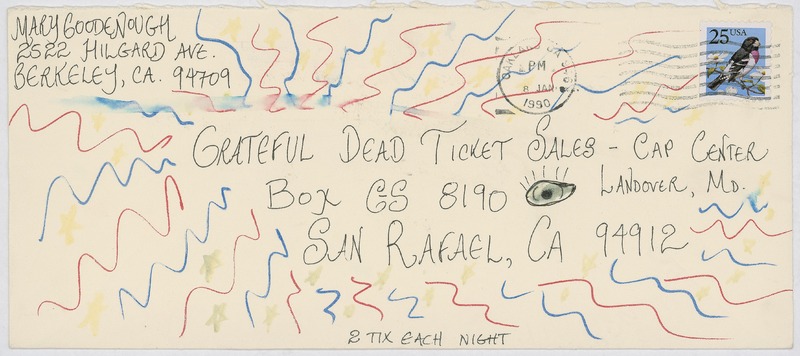 MARY GOODENOUGH
2522 HILGARD AVE.
BERKELEY, CA. 94709
25 USA
PM
8 JAN
1990
GRATEFUL DEAD TICKET SALES - CAP CENTER
LANDOVER, MD.
BOX GS 8190
SAN RAFAEL, CA 94912
2 TIX EACH NIGHT